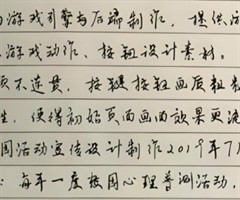 游戏引擎与后端制作，提供
游戏动作、按钮设计素材。
不连贯，按键按钮画质粗
，使得初始页面画面效果更
园活动宣传设计制作2019年7月
每年一度校园心理普测活动，